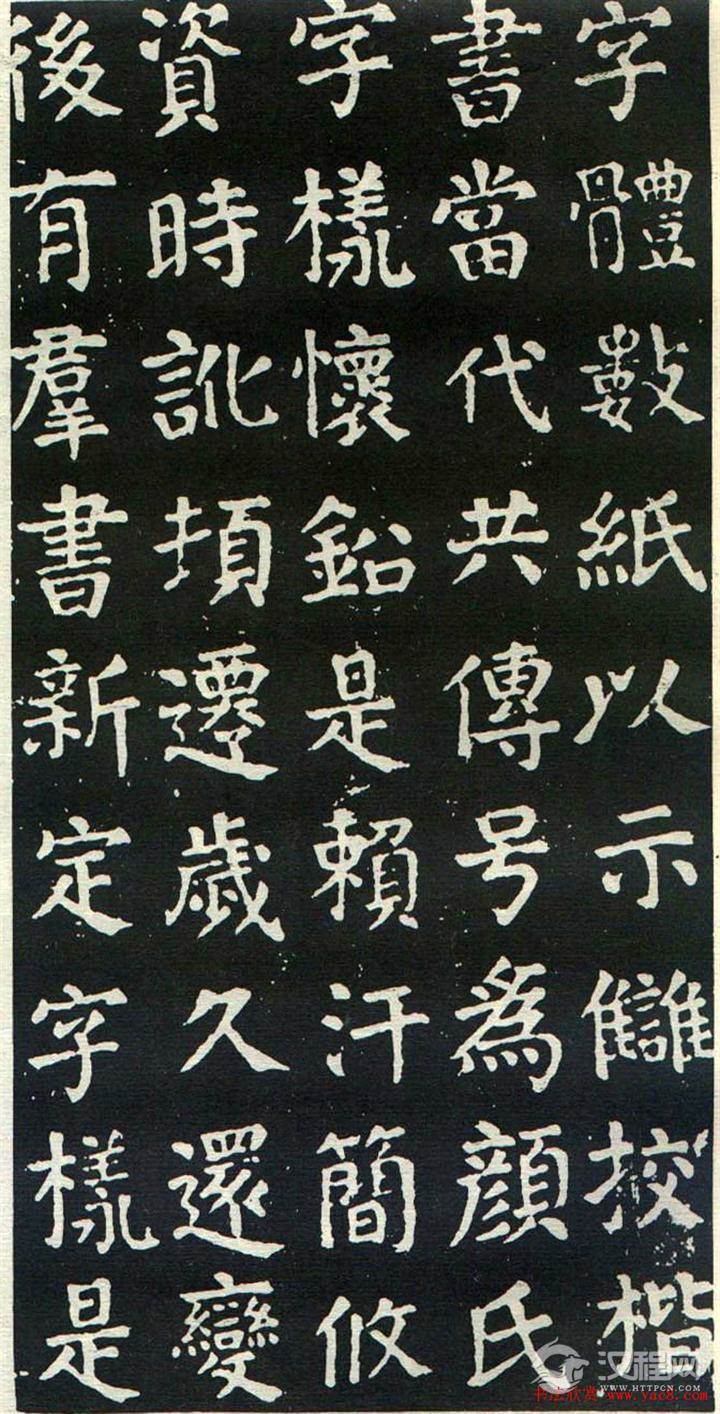 字體數紙以示讎挍楷
書當代共傳号為顔氏
字樣懷鈆是賴汗簡攸
資時訛頓遷歲久還變
後有羣書新定字樣是
汉程网
WWW.HTTPCN.COM
书法欣赏 www.yac8.com